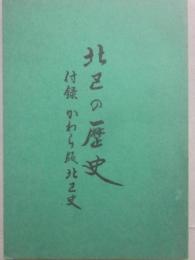 北区の歴史
付録 かわら版北区史